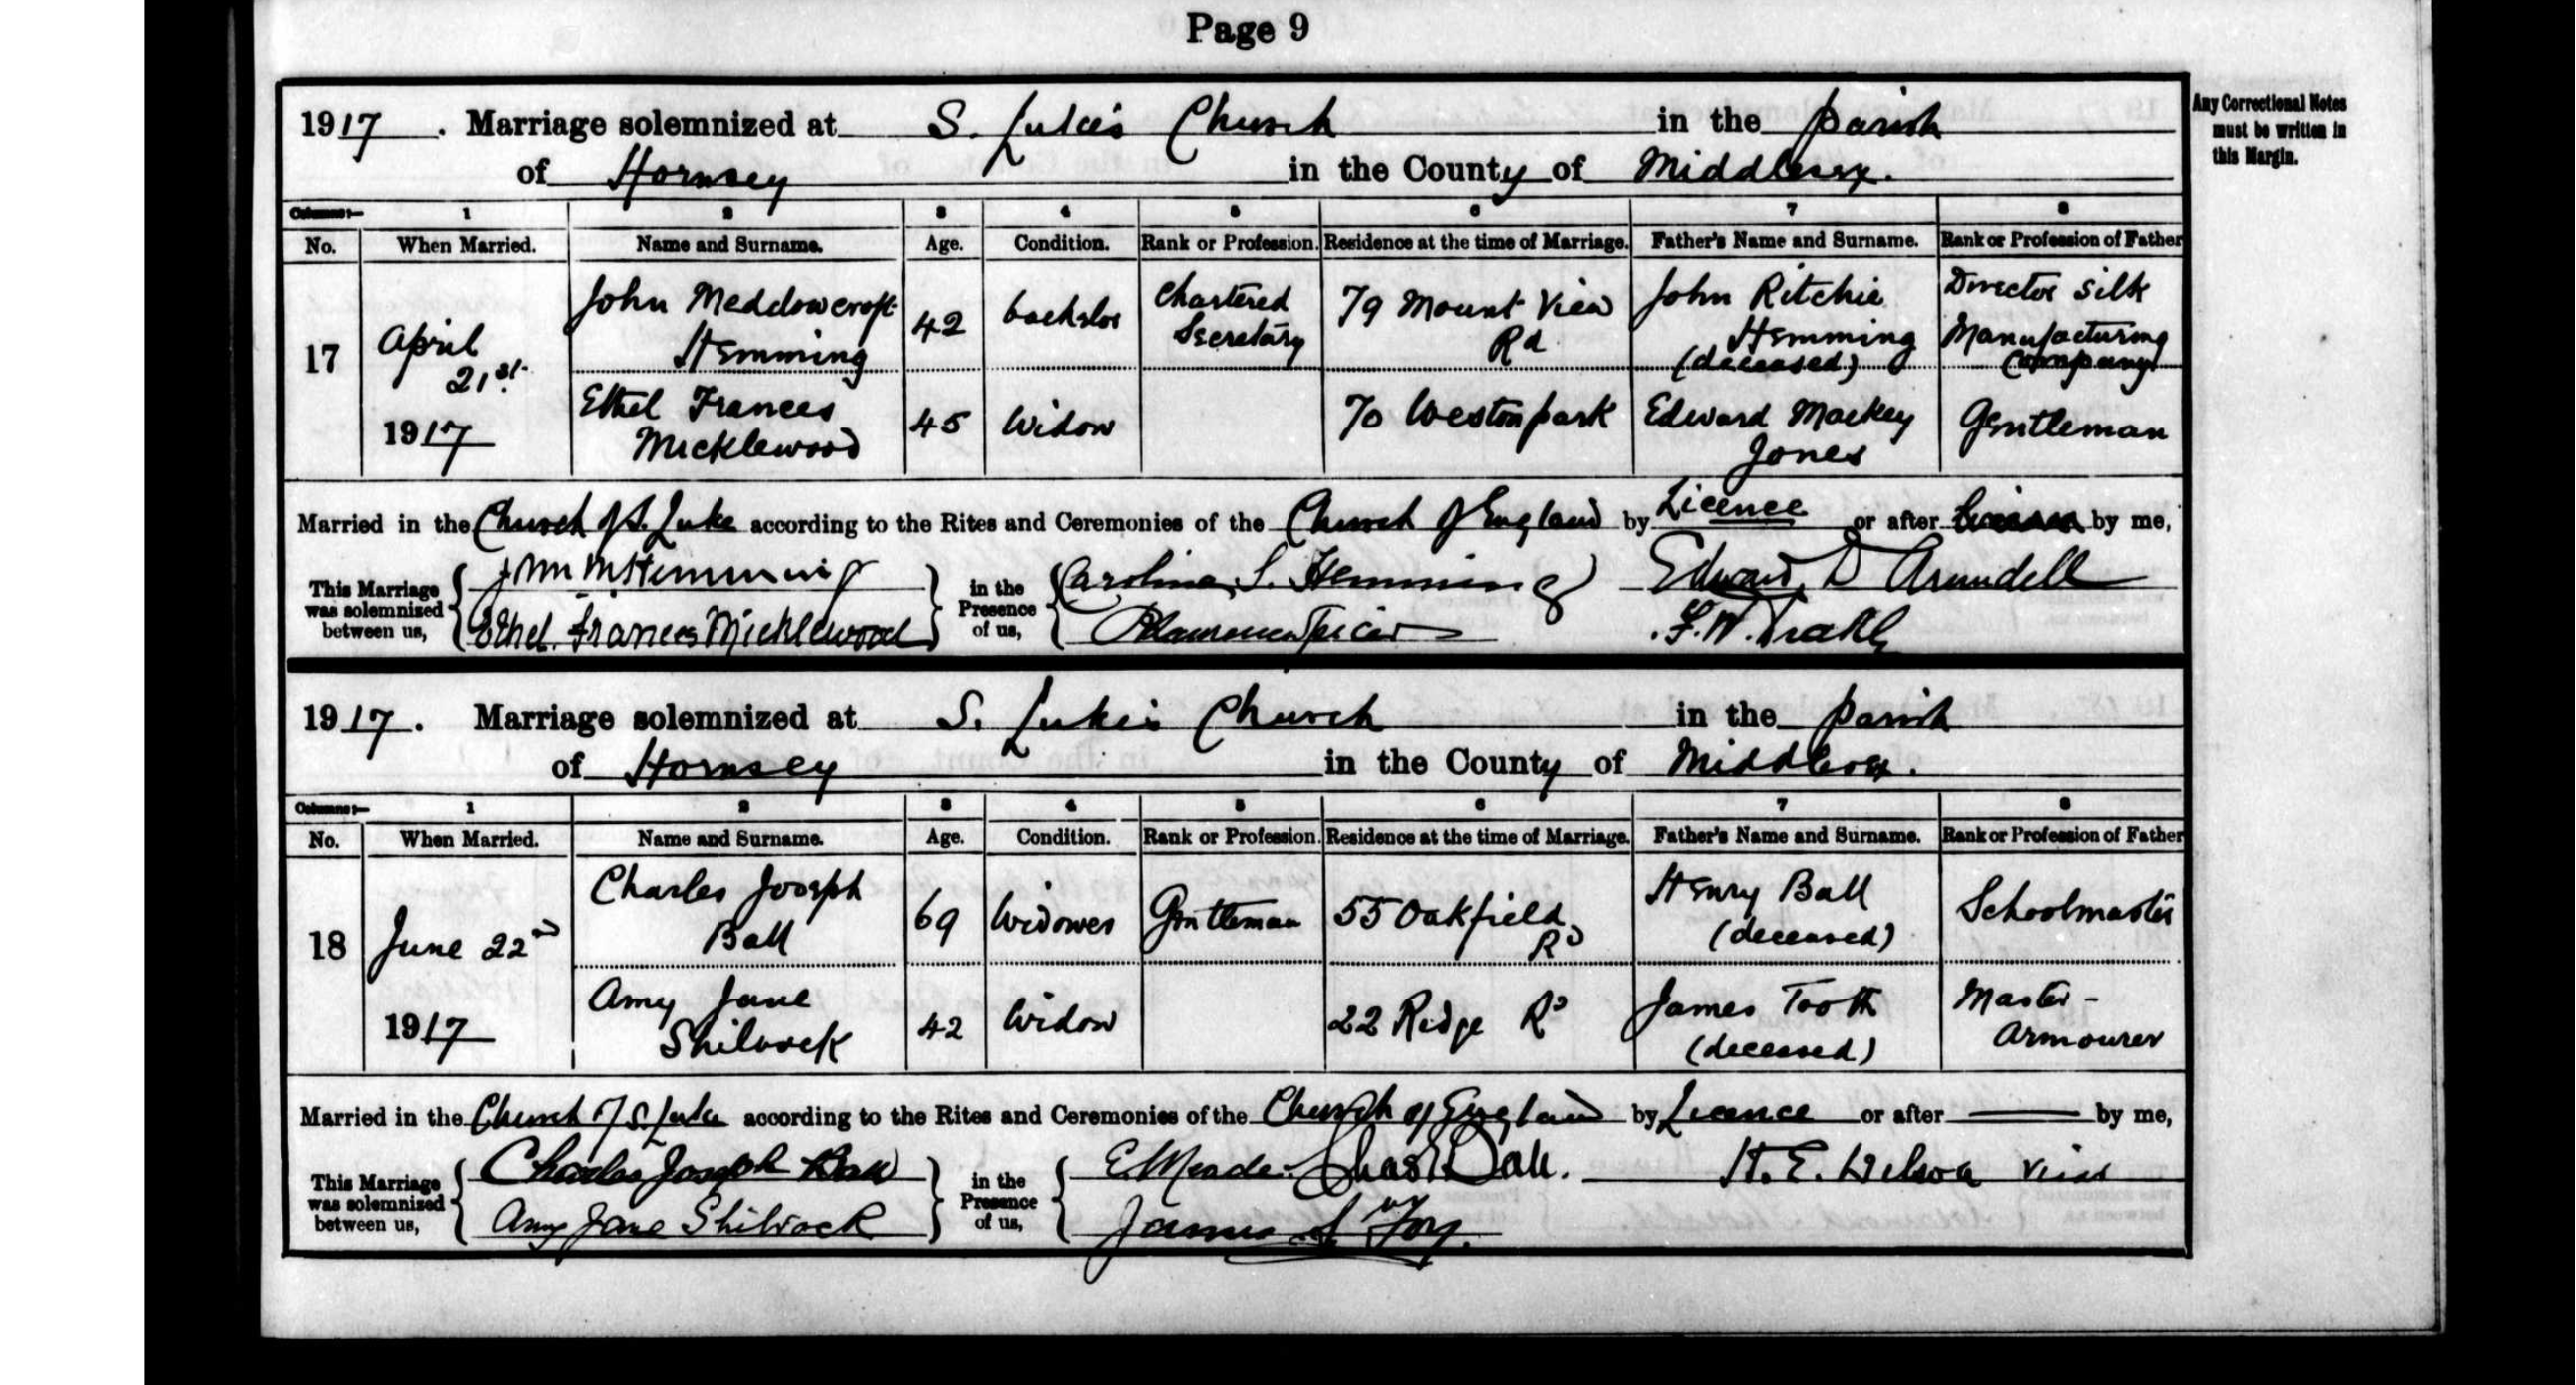 Page 9
1917. Marriage solemnized at S. Luke's Church in the parish
of Hornsey in the County of Middlesex.
Any Correctional Notes
must be written in
this Margin.
Columns:— 1 2 3 4 5 6 7 8
No. When Married. Name and Surname. Age. Condition. Rank or Profession. Residence at the time of Marriage. Father's Name and Surname. Rank or Profession of Father
17 April 21st. 1917
John Meddowcroft Hemming 42 bachelor Chartered Secretary 79 Mount View Rd John Ritchie Hemming (deceased) Director Silk Manufacturing Company
Ethel Frances Micklewood 45 Widow 70 Weston park Edward Mackey Jones Gentleman
Married in the Church of S. Luke according to the Rites and Ceremonies of the Church of England by Licence or after by me,
This Marriage was solemnized between us, John M Hemming in the Presence of us, Caroline S. Hemming Edward D Arundell
Ethel Frances Micklewood Spicer F. W.
1917. Marriage solemnized at S. Luke's Church in the parish
of Hornsey in the County of Middlesex.
Columns:— 1 2 3 4 5 6 7 8
No. When Married. Name and Surname. Age. Condition. Rank or Profession. Residence at the time of Marriage. Father's Name and Surname. Rank or Profession of Father
18 June 22nd 1917
Charles Joseph Ball 69 Widower Gentleman 55 Oakfield Rd Henry Ball (deceased) Schoolmaster
Amy Jane Shilcock 42 Widow 22 Ridge Rd James Tooth (deceased) Master-Armourer
Married in the Church of S. Luke according to the Rites and Ceremonies of the Church of England by Licence or after — by me,
This Marriage was solemnized between us, Charles Joseph Ball in the Presence of us, E. Meade. Chas Ball. H. E. Vicar
Amy Jane Shilcock James